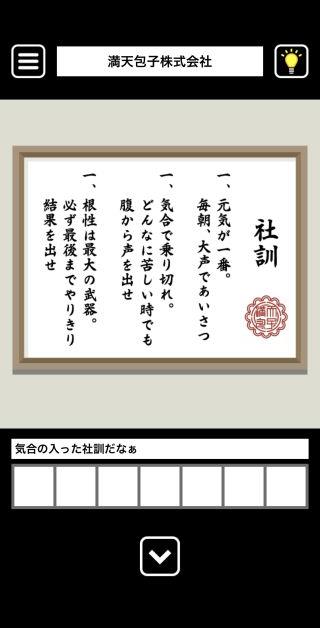 満天包子株式会社
社訓
一、元気が一番。
毎朝、大声であいさつ
一、気合で乗り切れ。
どんなに苦しい時でも
腹から声を出せ
一、根性は最大の武器。
必ず最後までやりきり
結果を出せ
気合の入った社訓だなぁ